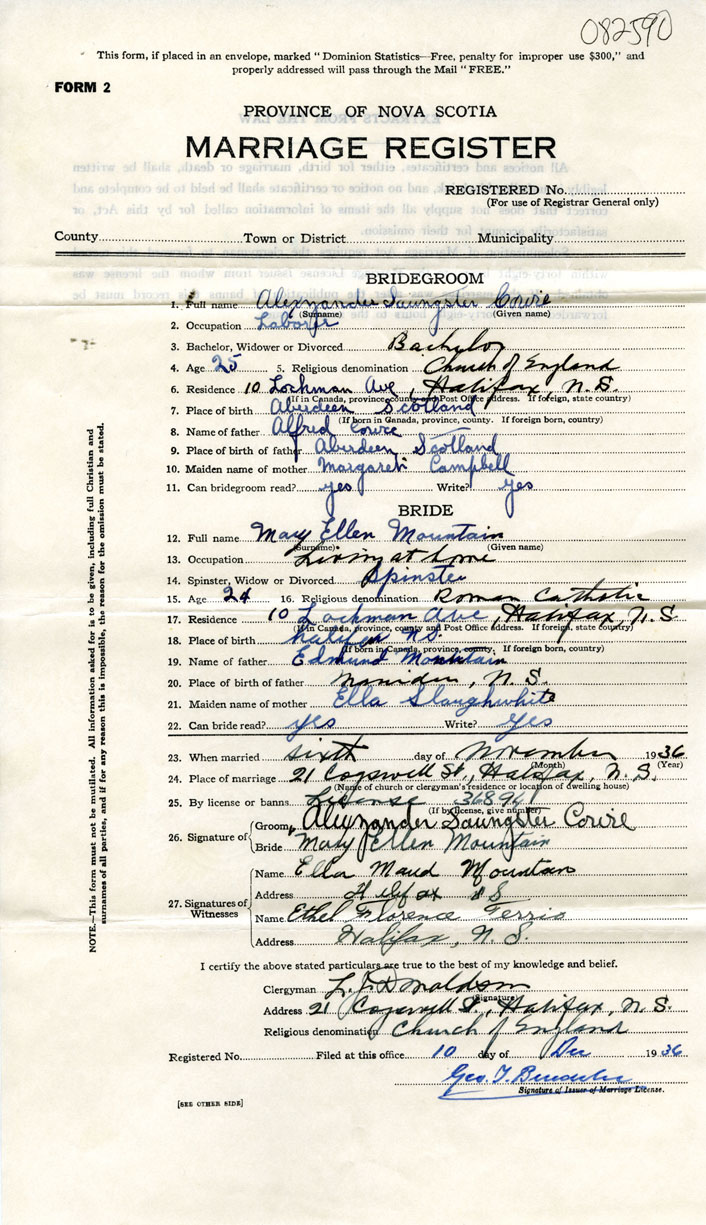 082590
This form, if placed in an envelope, marked "Dominion Statistics—Free, penalty for improper use $300," and
properly addressed will pass through the Mail "FREE."
FORM 2
PROVINCE OF NOVA SCOTIA
MARRIAGE REGISTER
REGISTERED No.
(For use of Registrar General only)
County Town or District Municipality
BRIDEGROOM
1. Full name Alexander Saungster Cowie
(Surname) (Given name)
2. Occupation Laborer
3. Bachelor, Widower or Divorced Bachelor
4. Age 25 5. Religious denomination Church of England
6. Residence 10 Lochman Ave, Halifax, N.S.
(If in Canada, province, county and Post Office address. If foreign, state country)
7. Place of birth Aberdeen Scotland
(If born in Canada, province, county. If foreign born, country)
8. Name of father Alfred Cowie
9. Place of birth of father Aberdeen Scotland
10. Maiden name of mother Margaret Campbell
11. Can bridegroom read? yes Write? yes
BRIDE
12. Full name Mary Ellen Mountain
(Surname) (Given name)
13. Occupation Living at home
14. Spinster, Widow or Divorced Spinster
15. Age 24 16. Religious denomination Roman Catholic
17. Residence 10 Lochman Ave, Halifax, N.S
(If in Canada, province, county and Post Office address. If foreign, state country)
18. Place of birth Halifax N.S.
(If born in Canada, province, county. If foreign born, country)
19. Name of father Edmund Mountain
20. Place of birth of father N.S.
21. Maiden name of mother Ella Slaughwhite
22. Can bride read? yes Write? yes
23. When married sixth day of November 1936
(Month) (Year)
24. Place of marriage 21 Cogswell St., Halifax, N.S.
(Name of church or clergyman's residence or location of dwelling house)
25. By license or banns License 36894
(If by license, give number)
26. Signature of Groom Alexander Saungster Cowie
Bride Mary Ellen Mountain
27. Signatures of Witnesses
Name Ella Maud Mountain
Address Halifax N S
Name Ethel Florence Ferris
Address Halifax, N.S.
I certify the above stated particulars are true to the best of my knowledge and belief.
Clergyman L. J. Donaldson
(Signature)
Address 21 Cogswell St., Halifax, N.S.
Religious denomination Church of England
Registered No. Filed at this office 10 day of Dec 1936
Geo. T.
Signature of Issuer of Marriage License.
[SEE OTHER SIDE]
NOTE.—This form must not be mutilated. All information asked for is to be given, including full Christian and
surnames of all parties, and if for any reason this is impossible, the reason for the omission must be stated.